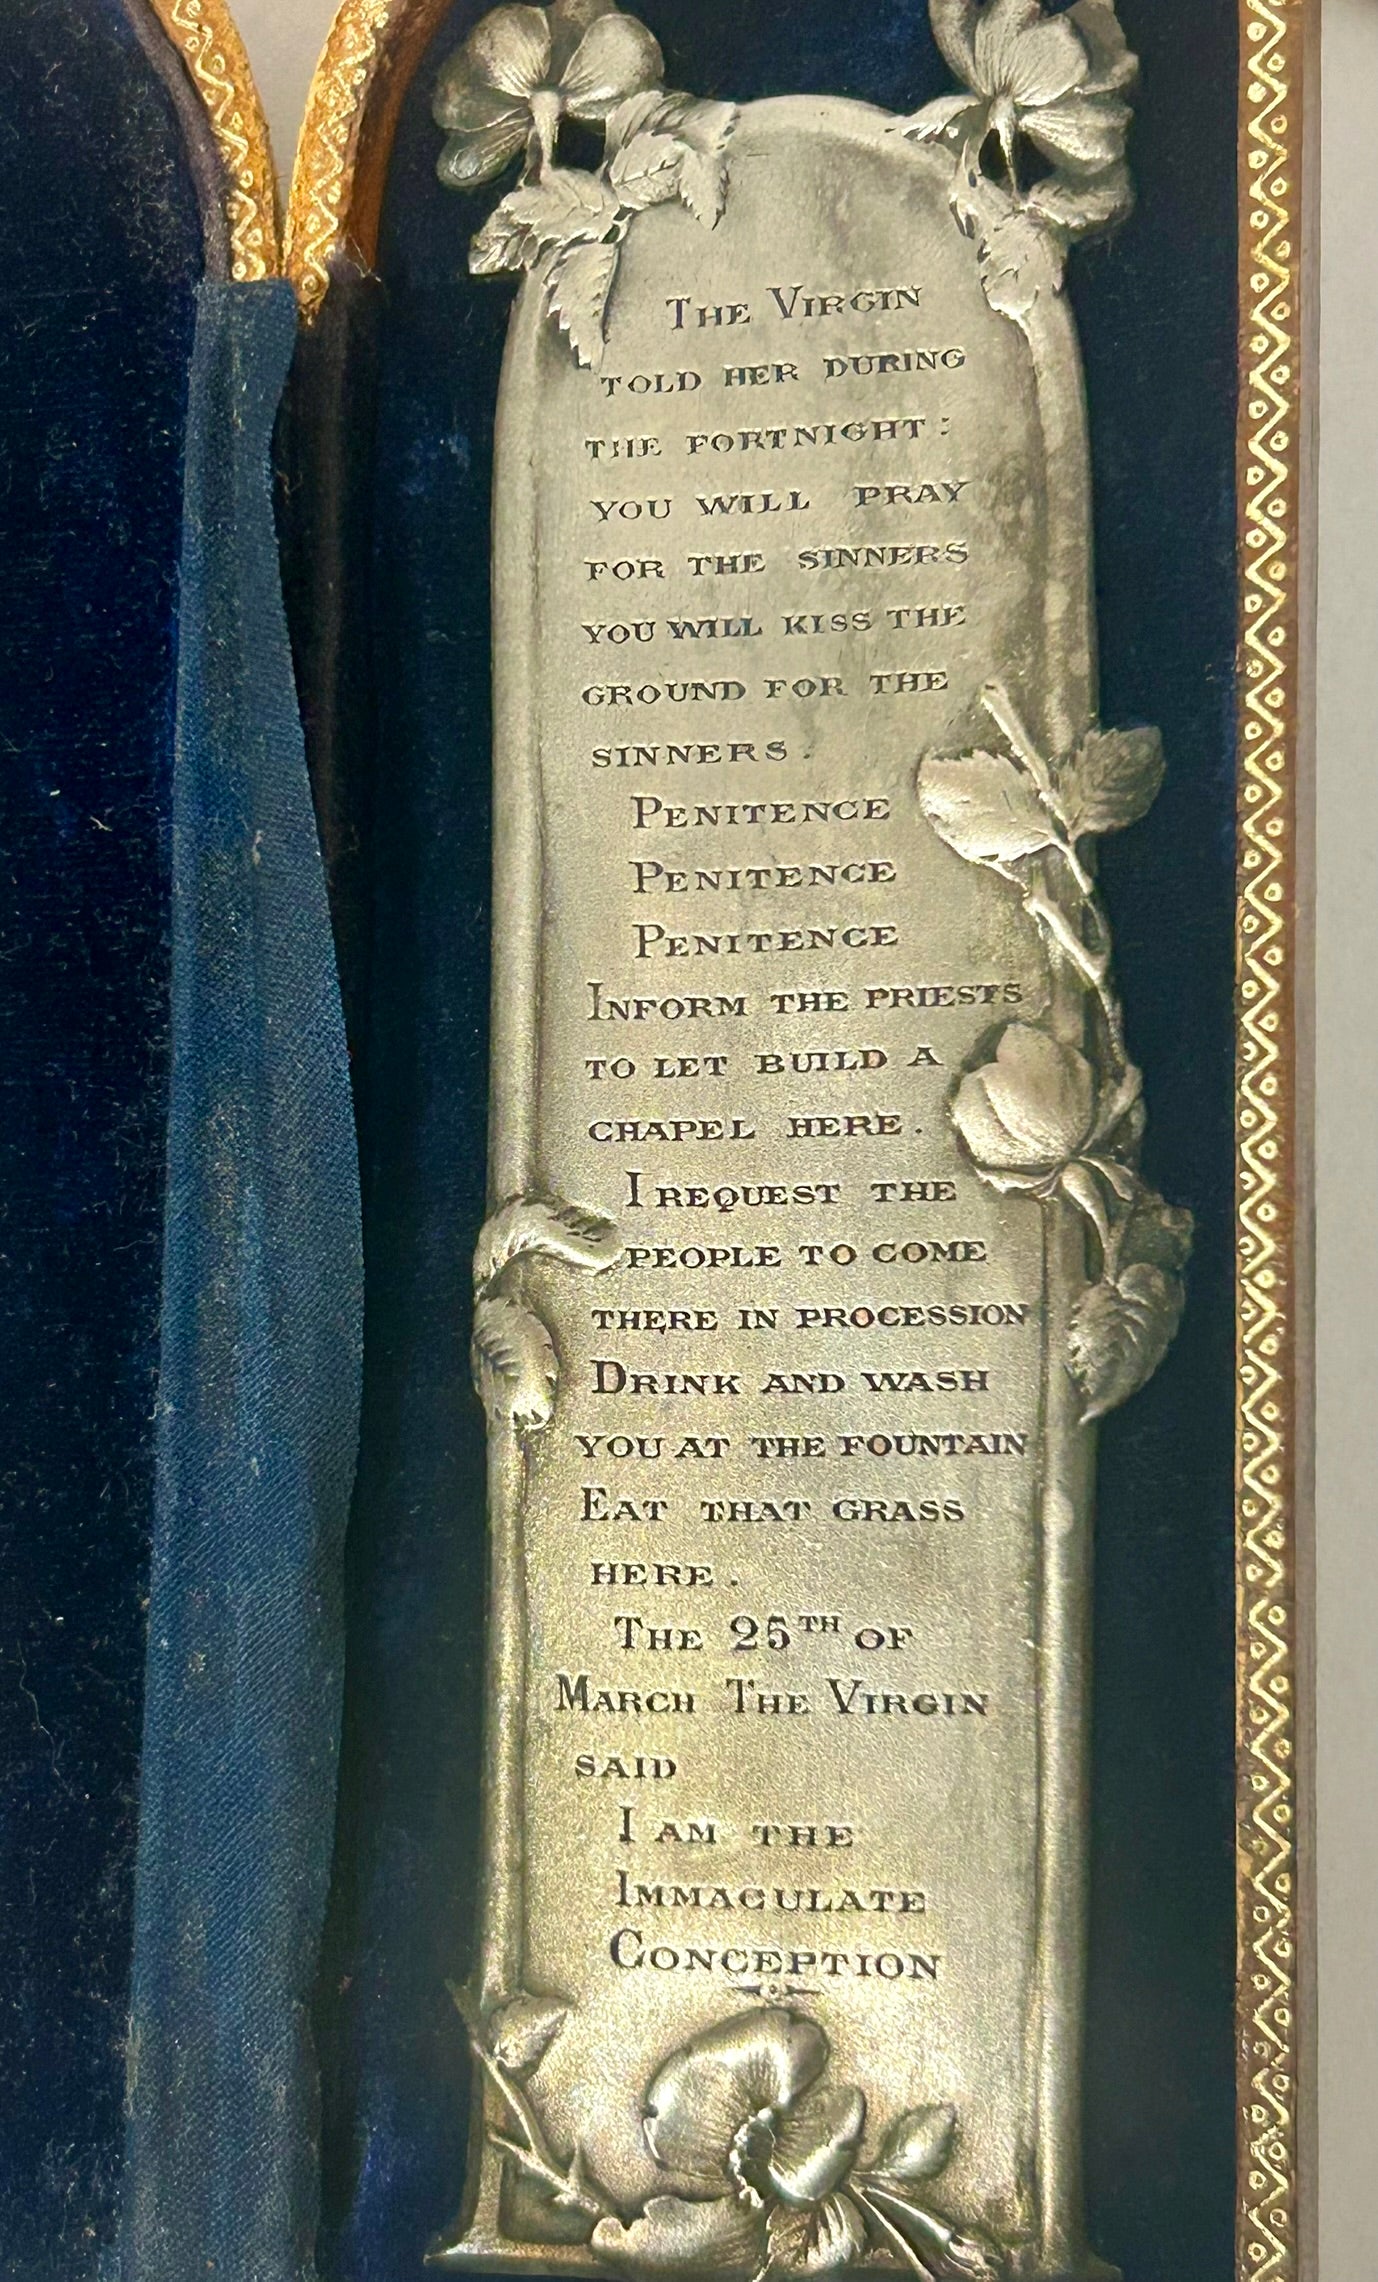 The Virgin
told her during
the fortnight:
you will pray
for the sinners
you will kiss the
ground for the
sinners.
Penitence
Penitence
Penitence
Inform the priests
to let build a
chapel here.
I request the
people to come
there in procession
Drink and wash
you at the fountain
Eat that grass
here.
The 25th of
March The Virgin
said
I am the
Immaculate
Conception